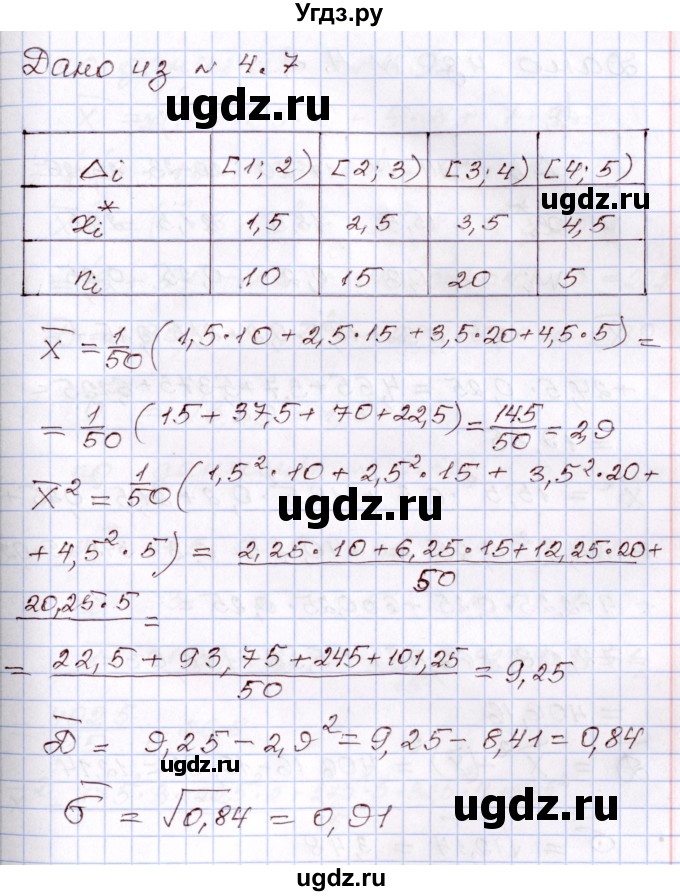 Угдз.ру
Дано из № 4.7
ugdz.ru
Δi [1; 2) [2; 3) [3; 4) [4; 5)
ugdz.ru
xi* 1,5 2,5 3,5 4,5
ni 10 15 20 5
X̅ = 1/50 (1,5·10 + 2,5·15 + 3,5·20 + 4,5·5) =
ugdz.ru
= 1/50 (15 + 37,5 + 70 + 22,5) = 145/50 = 2,9
X̅² = 1/50 (1,5²·10 + 2,5²·15 + 3,5²·20 +
ugdz.ru
+ 4,5²·5) = 2,25·10 + 6,25·15 + 12,25·20 +
50
20,25·5 =
ugdz.ru
= 22,5 + 93,75 + 245 + 101,25 / 50 = 9,25
D̅ = 9,25 − 2,9² = 9,25 − 8,41 = 0,84
ugdz.ru
σ̅ = √0,84 = 0,91
ugdz.ru
ugdz.ru